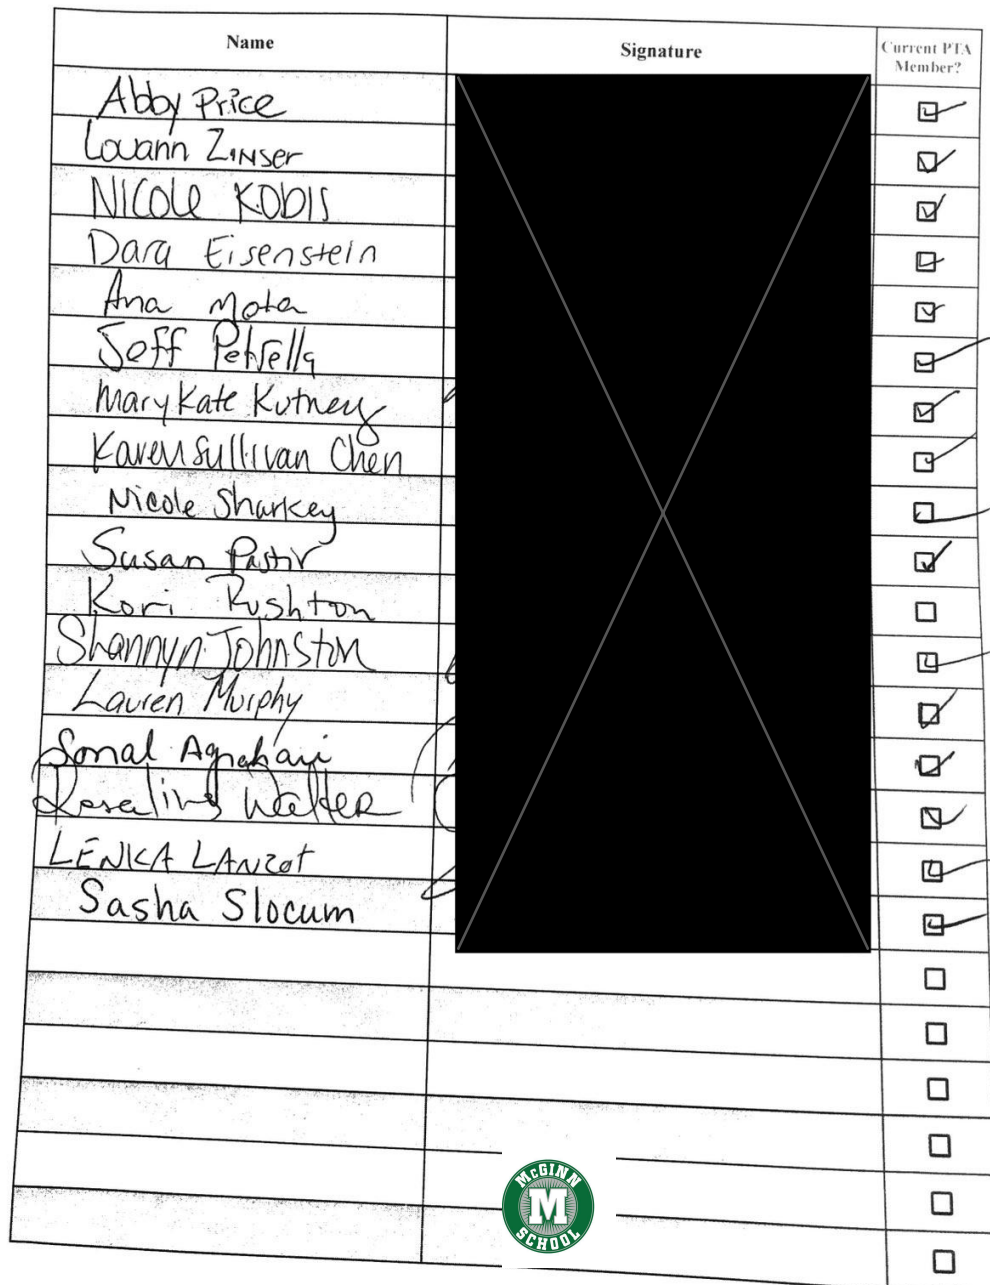 Name Signature Current PTA
Member?
Abby Price
Louann Zinser
Nicole Kobis
Dara Eisenstein
Ana Mota
Jeff Petrella
Mary Kate Kutney
Karen Sullivan Chen
Nicole Sharkey
Susan Pastir
Kori Rushton
Shannyn Johnston
Lauren Murphy
Sonal Agrahari
Rosaline Walter
LENKA LANZOT
Sasha Slocum
McGINN
M
SCHOOL